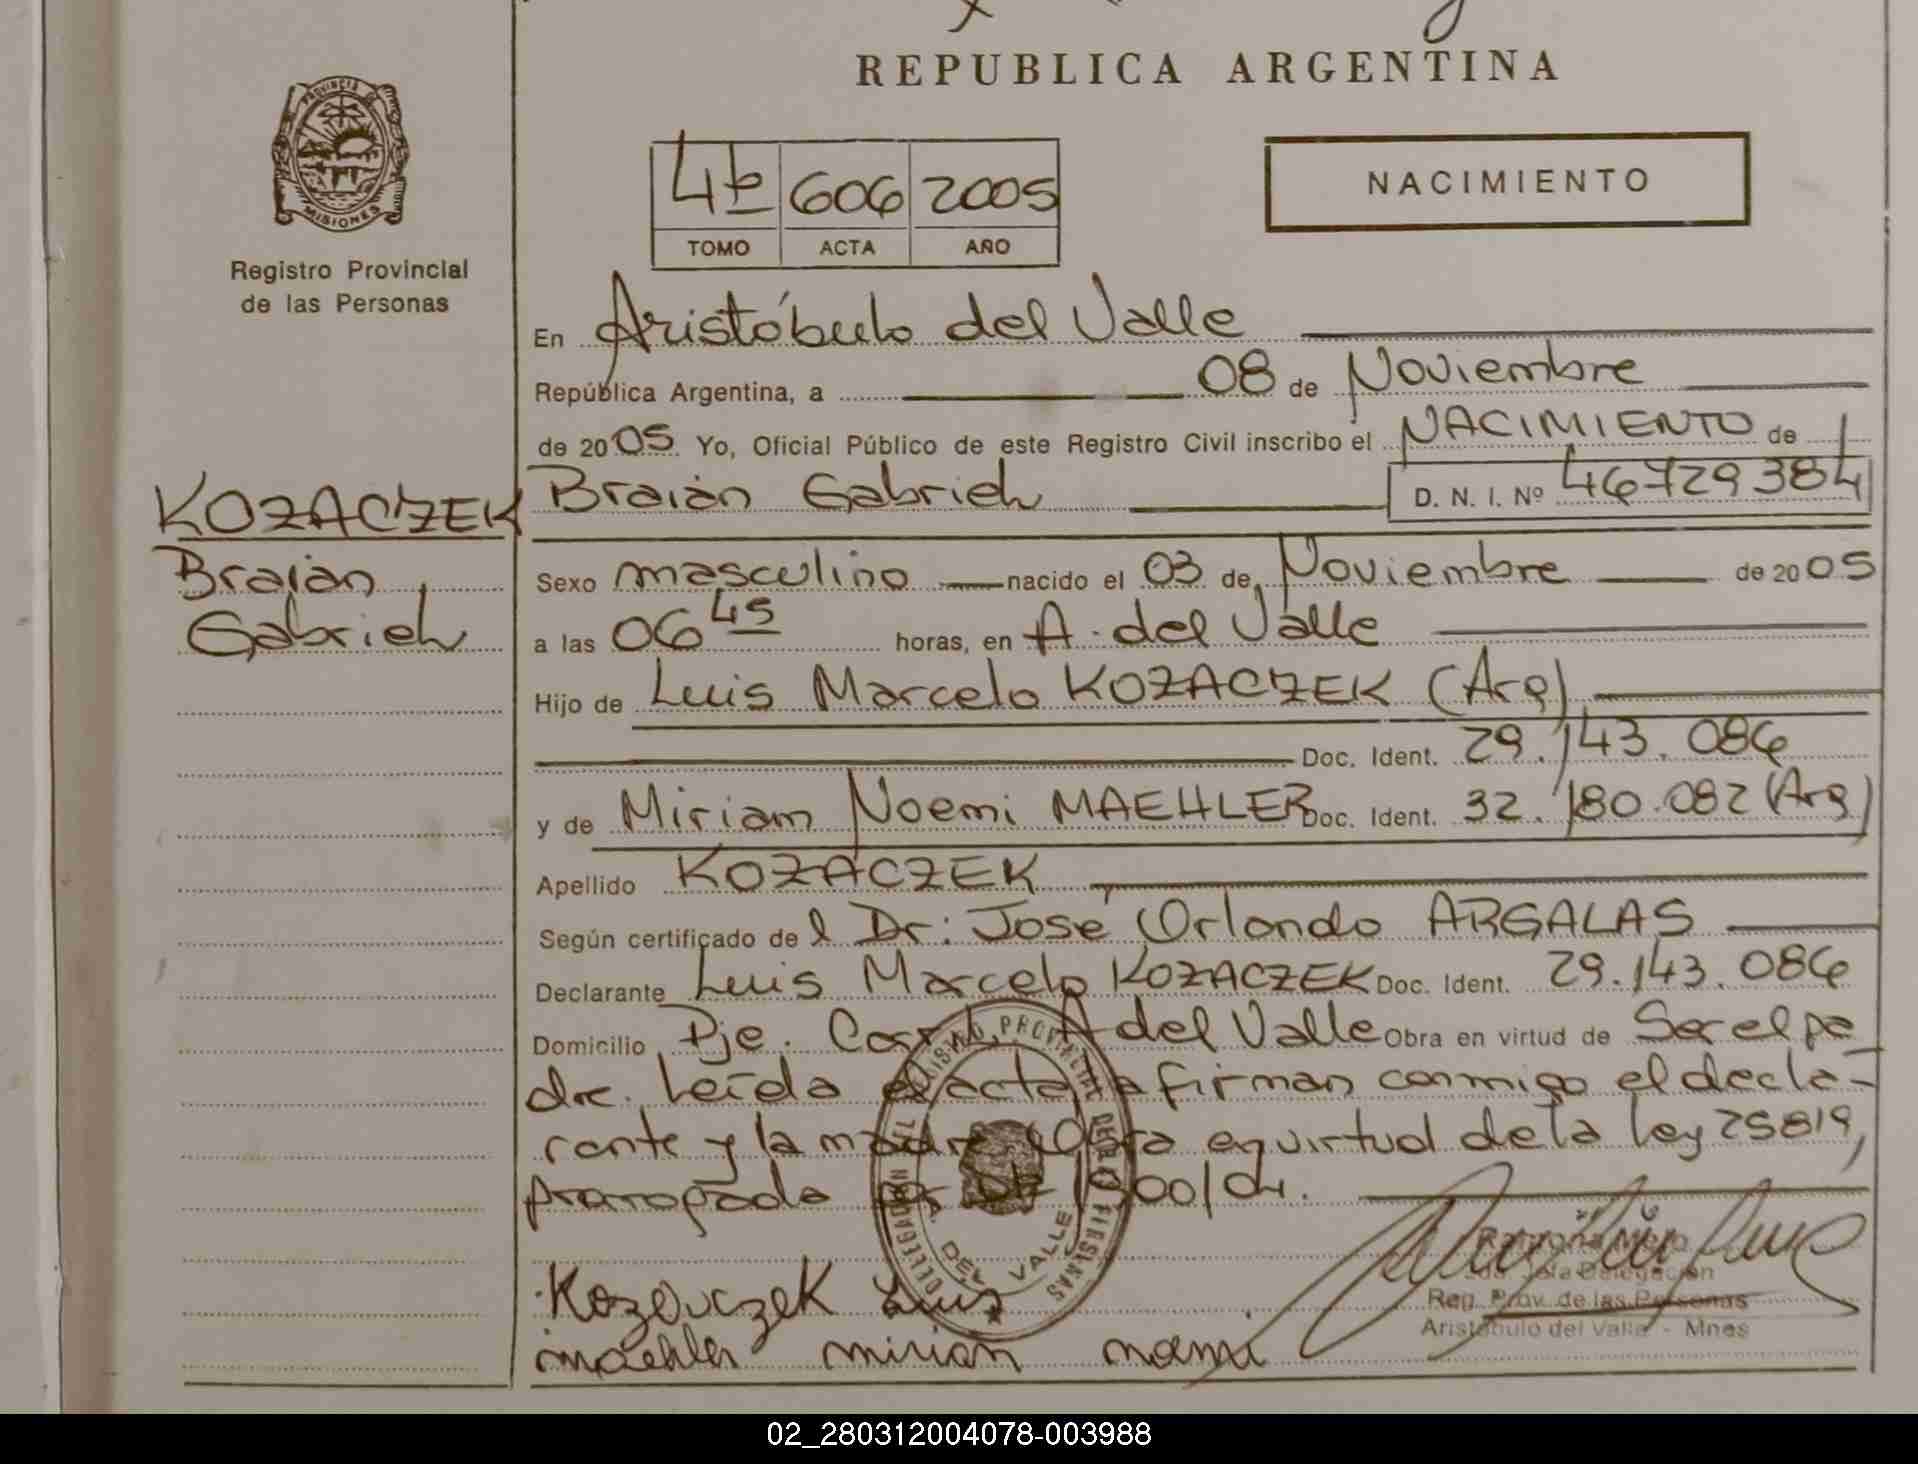 REPUBLICA ARGENTINA
PROVINCIA DE MISIONES
Registro Provincial
de las Personas
4b 606 2005
TOMO ACTA AÑO
NACIMIENTO
En Aristóbulo del Valle
República Argentina, a 08 de Noviembre
de 2005 Yo, Oficial Público de este Registro Civil inscribo el NACIMIENTO de
Braian Gabriel D. N. I. Nº 46729384
KOZACZEK
Braian
Gabriel
Sexo masculino nacido el 03 de Noviembre de 2005
a las 06 45 horas, en A. del Valle
Hijo de Luis Marcelo KOZACZEK (Arg)
Doc. Ident. 29.143.086
y de Miriam Noemi MAEHLER Doc. Ident. 32.180.082 (Arg)
Apellido KOZACZEK
Según certificado del Dr: José Orlando ARGALAS
Declarante Luis Marcelo KOZACZEK Doc. Ident. 29.143.086
Domicilio Pje. A del Valle Obra en virtud de Ser el pa
dre. Leída el acta, la firman conmigo el decla-
rante y la madre Obra en virtud de la ley 25819,
prorrogada por 1900/04.
DELEGACION DEL REGISTRO PROVINCIAL DE LAS PERSONAS
DEL VALLE
Kozaczek Luis
maehler mirian nomi
Ramona Mera
Jefa Delegación
Reg. Prov. de las Personas
Aristóbulo del Valle - Mnes
02_280312004078-003988